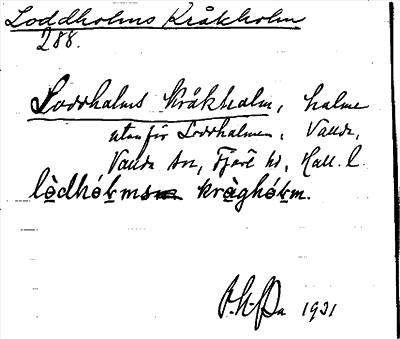 Loddholms Kråkholm
288.
Loddholms Kråkholm, holme
utanför Loddholmen, Vendre,
Vendre sn, Fjäre hd, Hall. l.
lòdhó̱ḷms kràghó̱ḷm.
1931